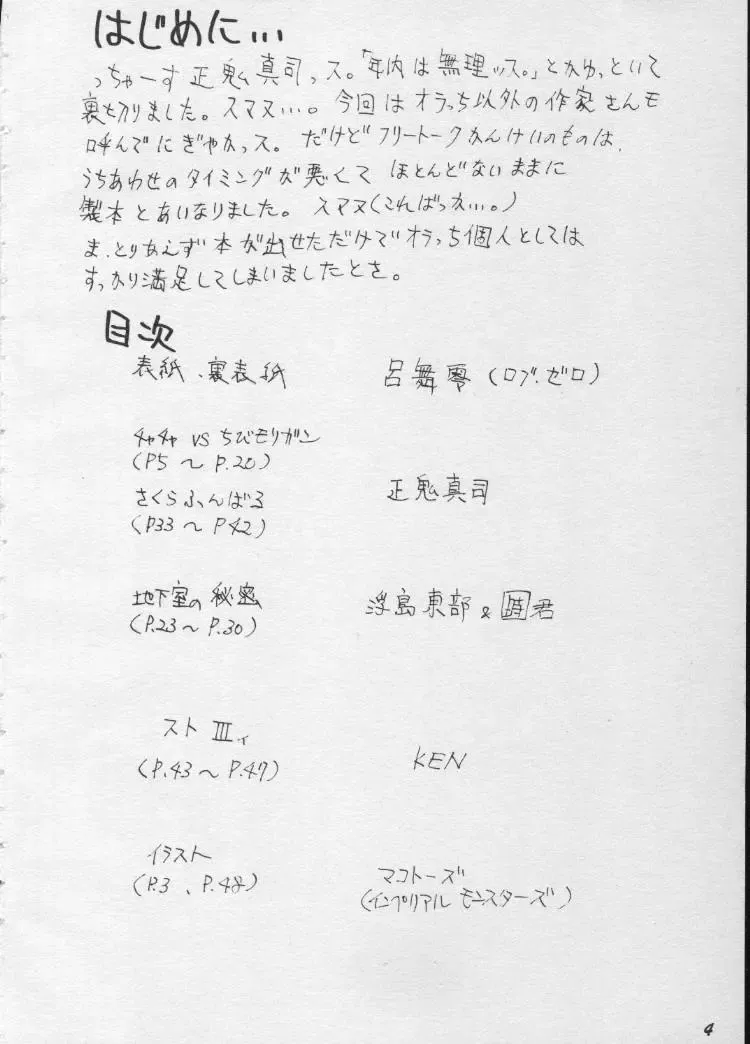 はじめに…
っちゃーす 正鬼真司っス。「年内は無理ッス。」とかゆっといて
裏切りました。スマヌ…。今回はオラっち以外の作家さんモ
呼んでにぎやかっス。だけどフリートークかんけいのものは、
うちあわせのタイミングが悪くて ほとんどないままに
製本とあいなりました。スマヌ(こればっか…。)
ま、とりあえず本が出せただけでオラっち個人としては
すっかり満足してしまいましたとさ。
目次
表紙、裏表紙 呂舞零(ロブ・ゼロ)
チャチャ VS ちびモリガン
(P5 〜 P.20)
さくらふんばる 正鬼真司
(P33 〜 P42)
地下室の秘密 浮島東部 & 時君
(P.23 〜 P.30)
スト III
(P.43 〜 P.47) KEN
イラスト
(P.3 、P.48) マコトーズ
(インペリアル モンスターズ)
4